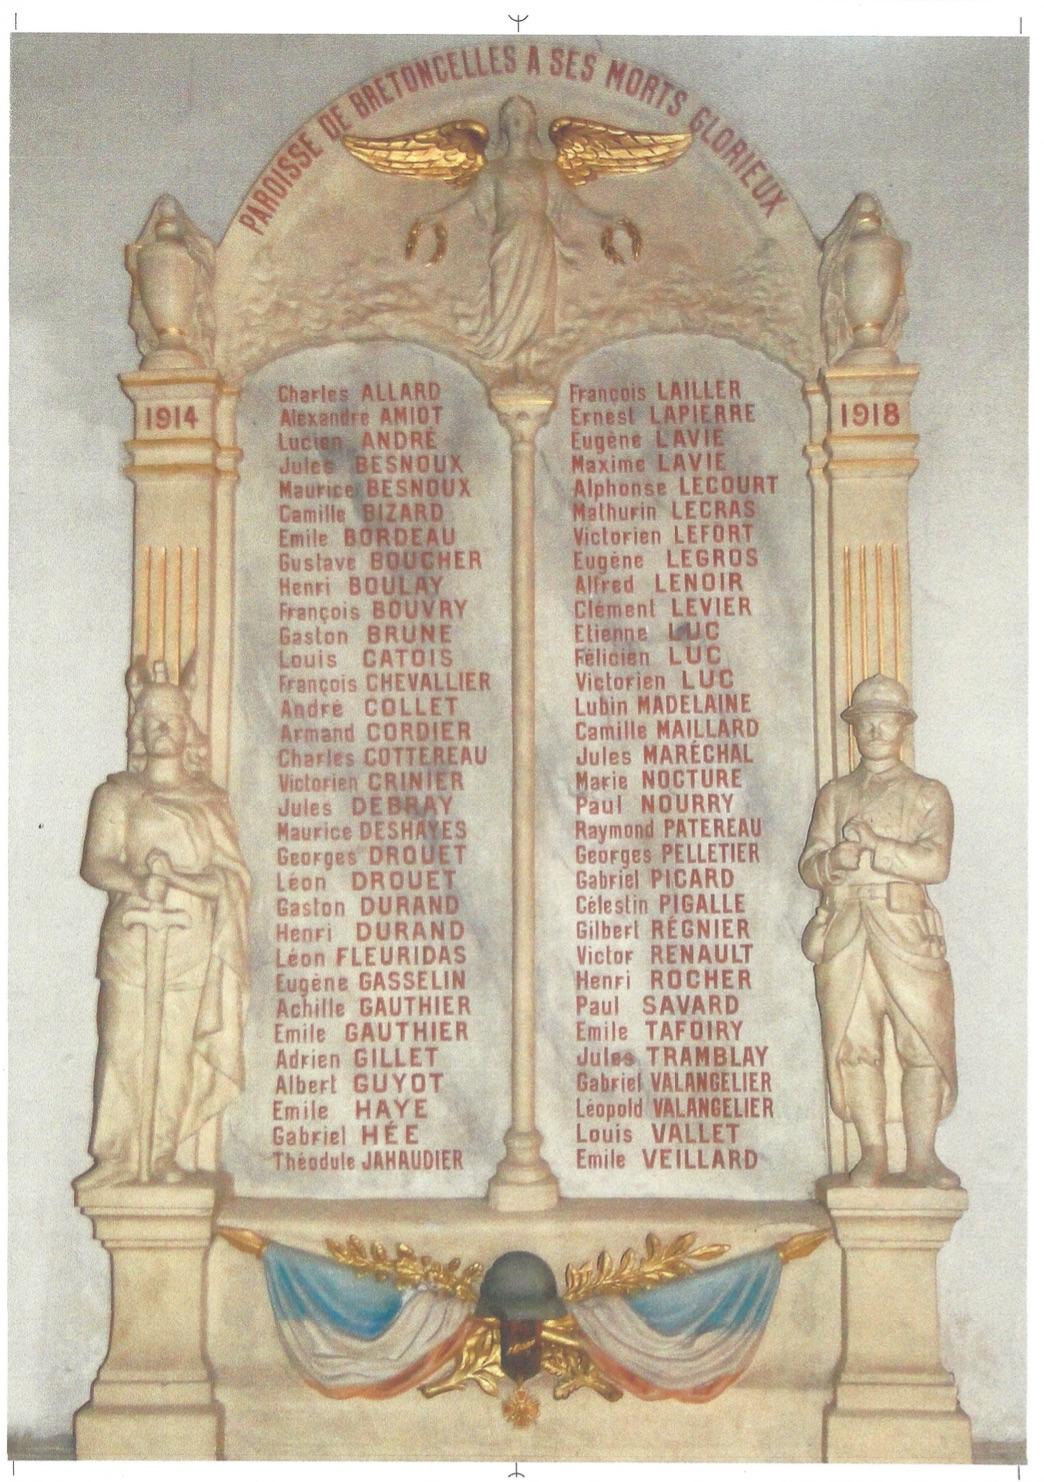 PAROISSE DE BRETONCELLES A SES MORTS GLORIEUX
1914
1918
Charles ALLARD
Alexandre AMIOT
Lucien ANDRÉ
Jules BESNOUX
Maurice BESNOUX
Camille BIZARD
Emile BORDEAU
Gustave BOUCHER
Henri BOULAY
François BOUVRY
Gaston BRUNE
Louis CATOIS
François CHEVALLIER
André COLLET
Armand CORDIER
Charles COTTEREAU
Victorien CRINIER
Jules DEBRAY
Maurice DESHAYES
Georges DROUET
Léon DROUET
Gaston DURAND
Henri DURAND
Léon FLEURIDAS
Eugène GASSELIN
Achille GAUTHIER
Emile GAUTHIER
Adrien GILLET
Albert GUYOT
Emile HAYE
Gabriel HÉE
Théodule JAHAUDIER
François LAILLER
Ernest LAPIERRE
Eugène LAVIE
Maxime LAVIE
Alphonse LECOURT
Mathurin LECRAS
Victorien LEFORT
Eugène LEGROS
Alfred LENOIR
Clément LEVIER
Etienne LUC
Félicien LUC
Victorien LUC
Lubin MADELAINE
Camille MAILLARD
Jules MARÉCHAL
Marie NOCTURE
Paul NOURRY
Raymond PATEREAU
Georges PELLETIER
Gabriel PICARD
Célestin PIGALLE
Gilbert RÉGNIER
Victor RENAULT
Henri ROCHER
Paul SAVARD
Emile TAFOIRY
Jules TRAMBLAY
Gabriel VALANGELIER
Léopold VALANGELIER
Louis VALLET
Emile VEILLARD